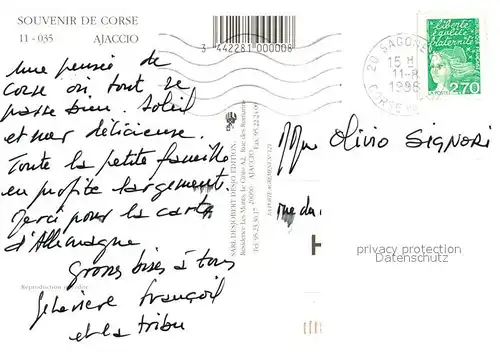 SOUVENIR DE CORSE
11 - 035 AJACCIO
Une pensée de
Corse où tout se
passe bien. Soleil
et mer délicieuse.
Toute la petite famille
en profite largement.
Merci pour la carte
d'Allemagne
Grosses bises à tous
Geneviève François
et la tribu
Reproduction interdite
3 442281 000008
SARL DESJOBERT DESJO EDITION,
Résidence Les Moines, Le Grim A2, Rue des Romarins
Tel 95.23.30.17 - 20090 - AJACCIO - Fax 95.22.24.09
20 SAGONE
15 H
11-8
1998
CORSE DU
liberté
égalité
fraternité
LA POSTE
2,70
Olivio SIGNORI
rue du
privacy protection
Datenschutz